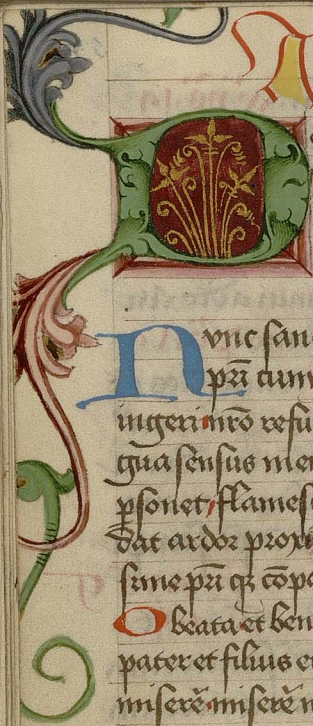 D
Nunc san
pri cum
ingeri nro refu
gua sensus me
psonet, flames
dat ardor proxi
sime pri qz cope
O beata et ben
pater et filius e
misere miserē n